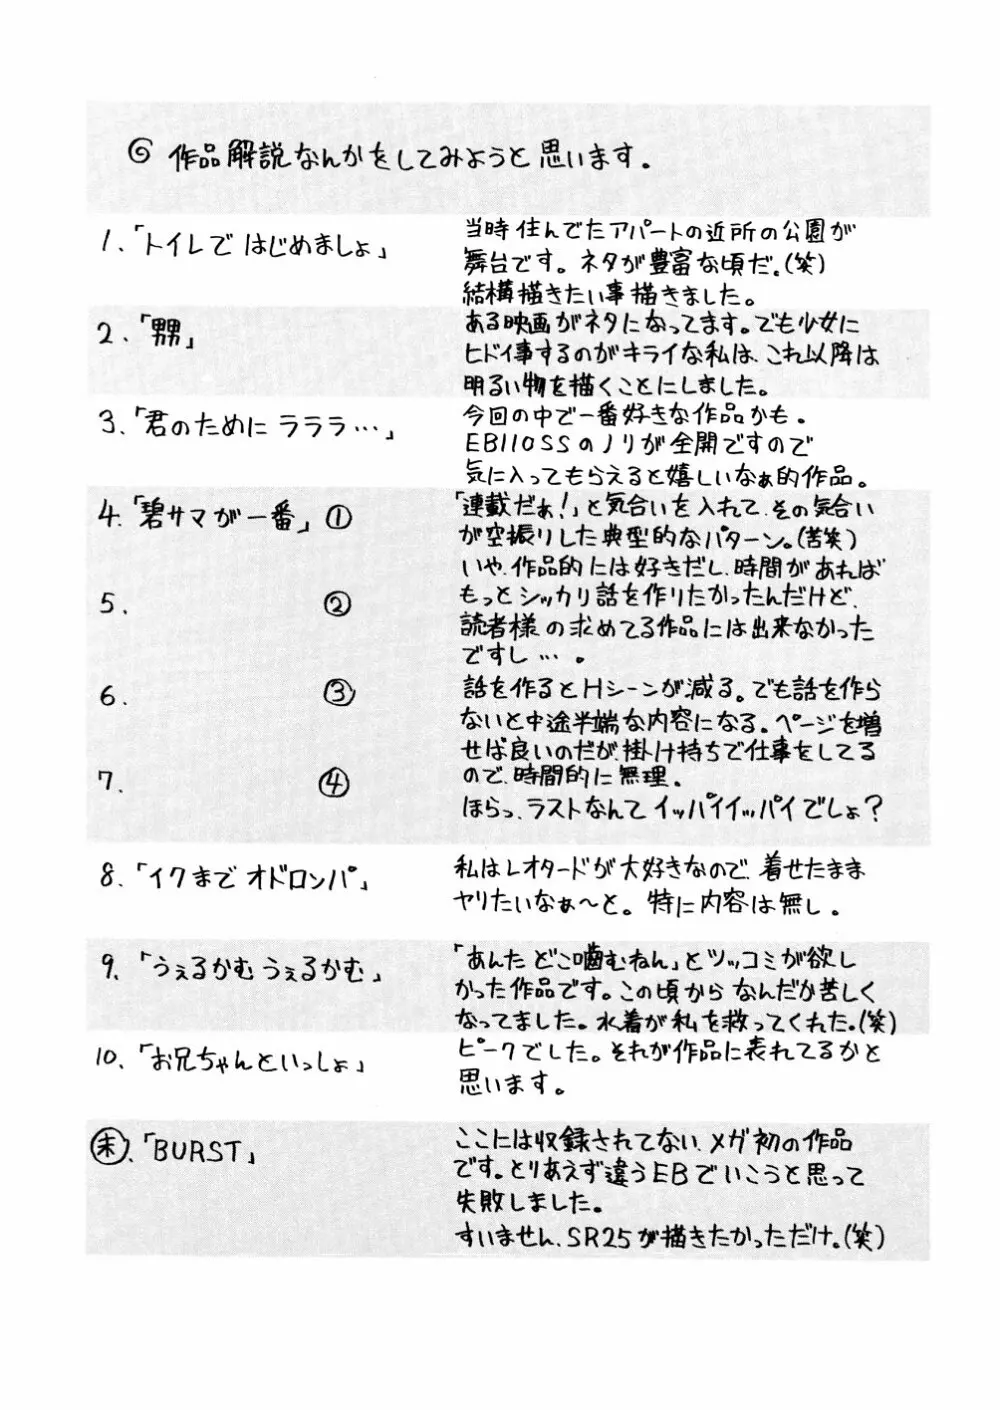 ◎ 作品解説なんかをしてみようと思います。
1.「トイレで はじめましょ」
当時住んでたアパートの近所の公園が
舞台です。ネタが豊富な頃だ。(笑)
結構描きたい事描きました。
2.「嬲」
ある映画がネタになってます。でも少女に
ヒドイ事するのがキライな私は、これ以降は
明るい物を描くことにしました。
3.「君のために ラララ…」
今回の中で一番好きな作品かも。
EB110SSのノリが全開ですので
気に入ってもらえると嬉しいなぁ的作品。
4.「碧サマが一番」①
5. ②
6. ③
7. ④
「連載だぁ!」と気合いを入れて、その気合い
が空振りした典型的なパターン。(苦笑)
いや、作品的には好きだし、時間があれば
もっとシッカリ話を作りたかったんだけど、
読者様の求めてる作品には出来なかった
ですし…。
話を作るとHシーンが減る。でも話を作ら
ないと中途半端な内容になる。ページを増
せば良いのだが、掛け持ちで仕事をしてる
ので、時間的に無理。
ほらっ、ラストなんてイッパイイッパイでしょ?
8.「イクまで オドロンパ」
私はレオタードが大好きなので、着せたまま
ヤリたいなぁ〜と。特に内容は無し。
9.「うぇるかむうぇるかむ」
「あんた どこ噛むねん」とツッコミが欲し
かった作品です。この頃から なんだか苦しく
なってました。水着が私を救ってくれた。(笑)
10.「お兄ちゃんといっしょ」
ピークでした。それが作品に表れてるかと
思います。
㊍.「BURST」
ここには収録されてない、メガ初の作品
です。とりあえず違うEBでいこうと思って
失敗しました。
すいません、SR25が描きたかっただけ。(笑)